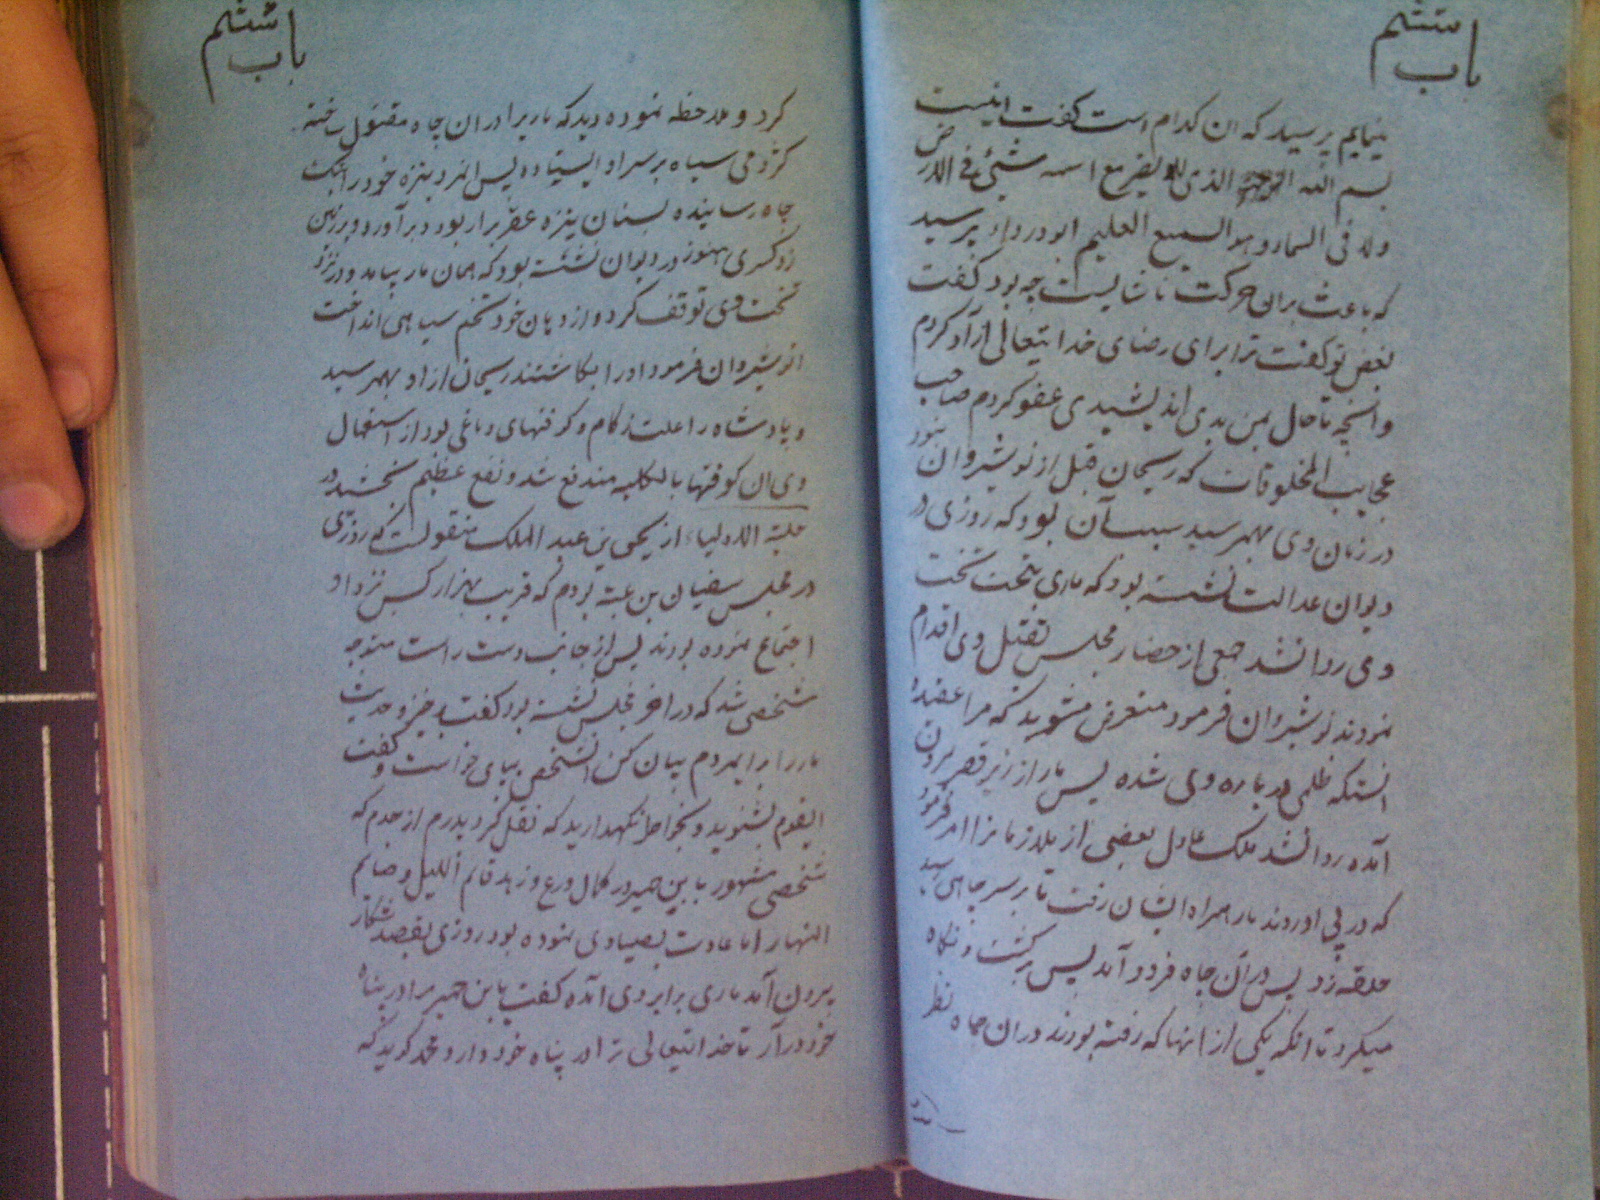 باب ششم
مینمایم پرسید که ان کدام است گفت اینست
بسم الله الذی لا یضر مع اسمه شئ فی الارض
ولا فی السماء و هو السمیع العلیم ابودرداء پرسید
که باعث بران حرکت ناشایست چه بود گفت
بغض تو گفت ترا برای رضای خدایتعالی ازاد کردم
و انچه تا حال بمن بدی اندیشیدی عفو کردم صاحب
عجایب المخلوقات که ریحان قبل از نوشیروان نبود
در زمان وی بهمرسید سبب آن بود که روزی در
دیوان عدالت نشسته بود که ماری بتحت تخت
وی روانشد جمعی از حضار مجلس بقتل وی اقدام
نمودند نوشیروان فرمود متعرض مشوید که مرا عقیدهٔ
انستکه ظلمی درباره وی شده پس مار از زیر قصر بیرون
آمده روانشد ملک عادل بعضی از ملازمانرا امر فرمود
که در پی اوروند مار همراه ایشان رفت تا بر سر چاهی رسید
حلقه زد پس دران چاه فرود آمد پس برگشت و نگاه
میکرد تا انکه یکی از انها که رفته بودند دران چاه نظر
باب ششم
کرد و ملاحظه نموده دید که مار برادران چاه مقتول
کژدمی سیاه بر سر او ایستاده پس انمرد نیزه خود را
چاه رسانیده بسنان نیزه عقرب را ربود و برآورد و بر زمین
زد کسری هنوز در دیوان نشسته بود که همان مار بیامد و در نزد
تخت وی توقف کرد و از دهان خود تخم سیاهی انداخت
انوشیروان فرمود اورا بکاشتند ریحان از او بهمرسید
و پادشاه را علت زکام و کوفتهای دماغی بود از استعمال
وی ان کوفتها بالکلیه مندفع شد و نفع عظیم بخشید در
حلیة الاولیاء از یحیی بن عبد الملک منقولست که روزی
در مجلس سفیان بن بودم که قریب بهزار کس نزد او
اجتماع نموده بودند پس از جانب دست راست متوجه
شخصی شد که در اخر مجلس نشسته بود گفت برخیز و حدیث
مار را برایمردم بیان کن انشخص بپای خواست و گفت
ایقوم بشنوید و بخواطر نگهدارید که نقل کرد پدرم از جدم که
شخصی مشهور بابن حمیر در کمال ورع و زهد قائم اللیل و صایم
النهار اما عادت بصیادی نموده بود روزی بقصد شکار
بیرون آمد ماری برابر وی آمده گفت یا بن حمیر مرا در پناه
خود درآر تا خدایتعالی ترا در پناه خود دارد محمد گوید که